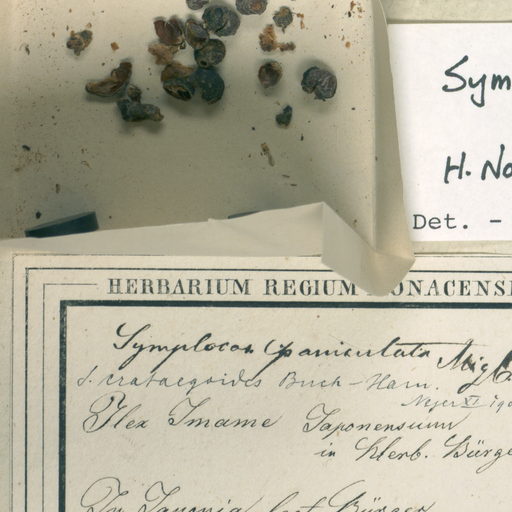 Sym
H. No
Det. -
HERBARIUM REGIUM MONACENS
Symplocos paniculata Miq
S. crataegoides Buch-Ham.
Ilex Imame Japonensium
in Herb. Bürge
In Japonia legt Bürger